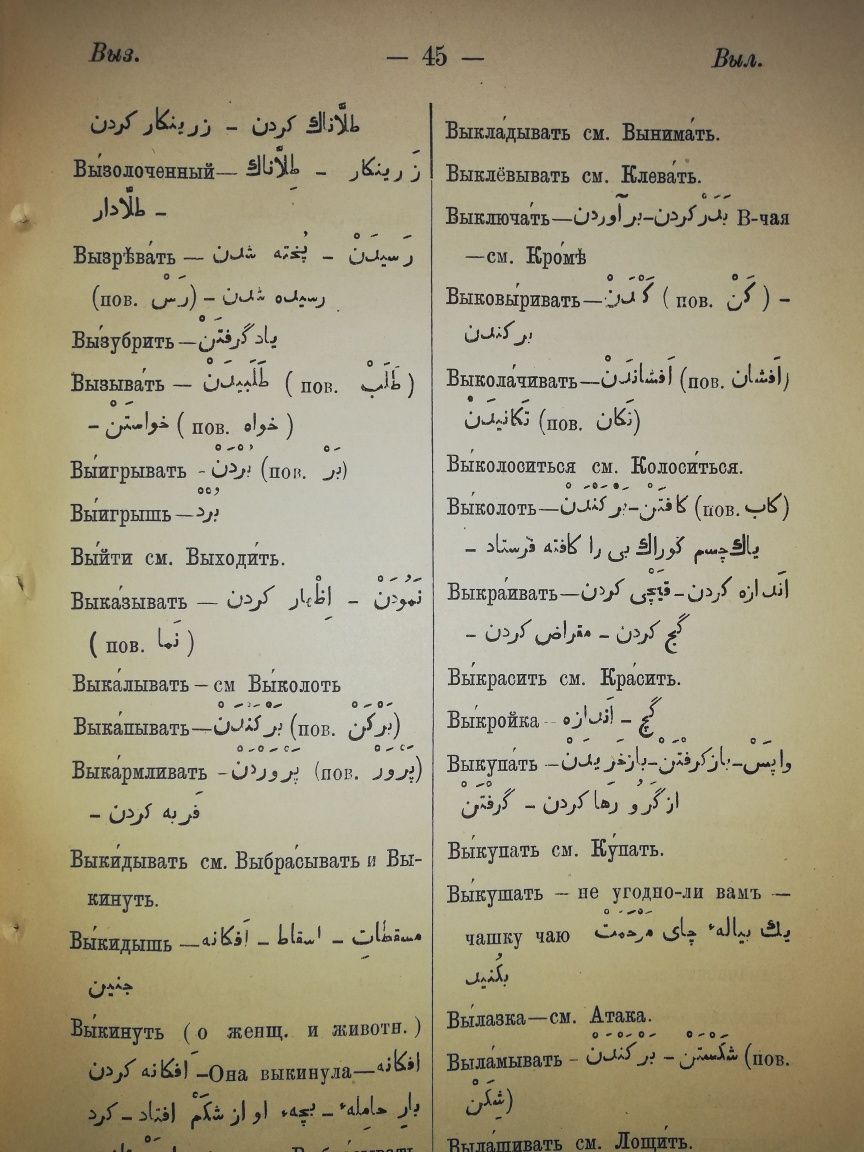 Выз.
— 45 —
Выл.
طلّاناك کردن – زرینکار کردن
Вы́золоченный— طِلّاناك – زَرینکار
– طلّادار
Вызрѣва́ть — رَسیدَنْ – پُخته شدن
(пов. رَسْ) – رسیده شدن
Вы́зубрить — یاد گرفتَنْ
Вызыва́ть — طَلَبیدَنْ (пов. طَلَبْ)
– خواستَنْ (пов. خواه)
Вы́игрывать - بُرْدَنْ (пов. بَرْ)
Вы́игрышь — بُرْدْ
Вы́йти см. Выходи́ть.
Выка́зывать — نَمُودَنْ – اِظْهار کردن
(пов. نَما)
Выка́лывать – см Вы́колоть
Выка́пывать— بَرْکَنْدَنْ (пов. بَرْکَنْ)
Выка́рмливать - پَرْوَرْدَنْ (пов. پَرْوَرْ)
– فَربه کردن
Выки́дывать см. Выбра́сывать и Вы́-
кинуть.
Вы́кидышь — مسقطات – اسقاط – اَفکانه
جنین
Вы́кинуть (о женщ. и животн.)
اَفکانه کردن –Она выкинула— افکانه
بارِ حامِله – بچهء او از شکَمْ افتاد – کرد
Выкла́дывать см. Вынима́ть.
Выклёвывать см. Клева́ть.
Выключа́ть— بَدَرْ کردن – بر آوردن В-чая
—см. Кро́мѣ
Выковы́ривать— کَنْدَنْ (пов. کَنْ) –
بر کندن
Выкола́чивать— اَفشانْدَنْ (пов. اَفشان)
تَکانیدَنْ (пов. تَکان)
Вы́колоситься см. Колоси́ться.
Вы́колоть— کافتَنْ – بَرْکَنْدَنْ (пов. کاب)
یاك چسم کوراك بی را کافته فرستاد –
Выкра́ивать— اَندازه کردن – قَیْچی کردن
– گیچ کردن – مقراض کردن
Вы́красить см. Кра́сить.
Вы́кройка – گیچ – اَندازه
Выкупа́ть — واپَسْ – باز کرفتَنْ – باز خَریدَنْ
از گَرو رَها کردن – گرفتَنْ
Вы́купать см. Ку́пать.
Вы́кушать – не угодно-ли вамъ —
чашку чаю یك پیالهء چای مَرْحَمَتْ
بکُنید
Вы́лазка—см. Атака.
Выла́мывать - شکَسْتَنْ – بَرْکَنْدَنْ (пов.
شِکَنْ)
Выла́щивать см. Лощи́ть.